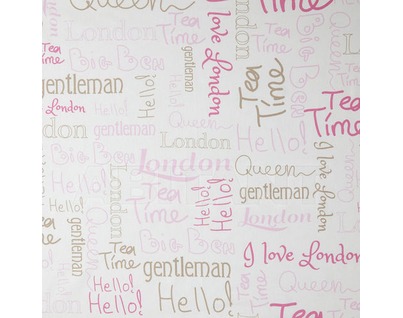 Queen
Tea
Time
London
Big Ben
I love London
Tea
Time
gentleman
Hello!
London
Hello!
London
gentleman
Queen
London
Big Ben
Hello!
London
Queen
gentleman
Tea
Time
I love
London
Hello!
Tea
Time
Hello!
Hello!
London
Queen
Big Ben
I love London
Tea
Time
gentleman
Hello!
Hello!
Queen
Hello!
London
Tea
Time